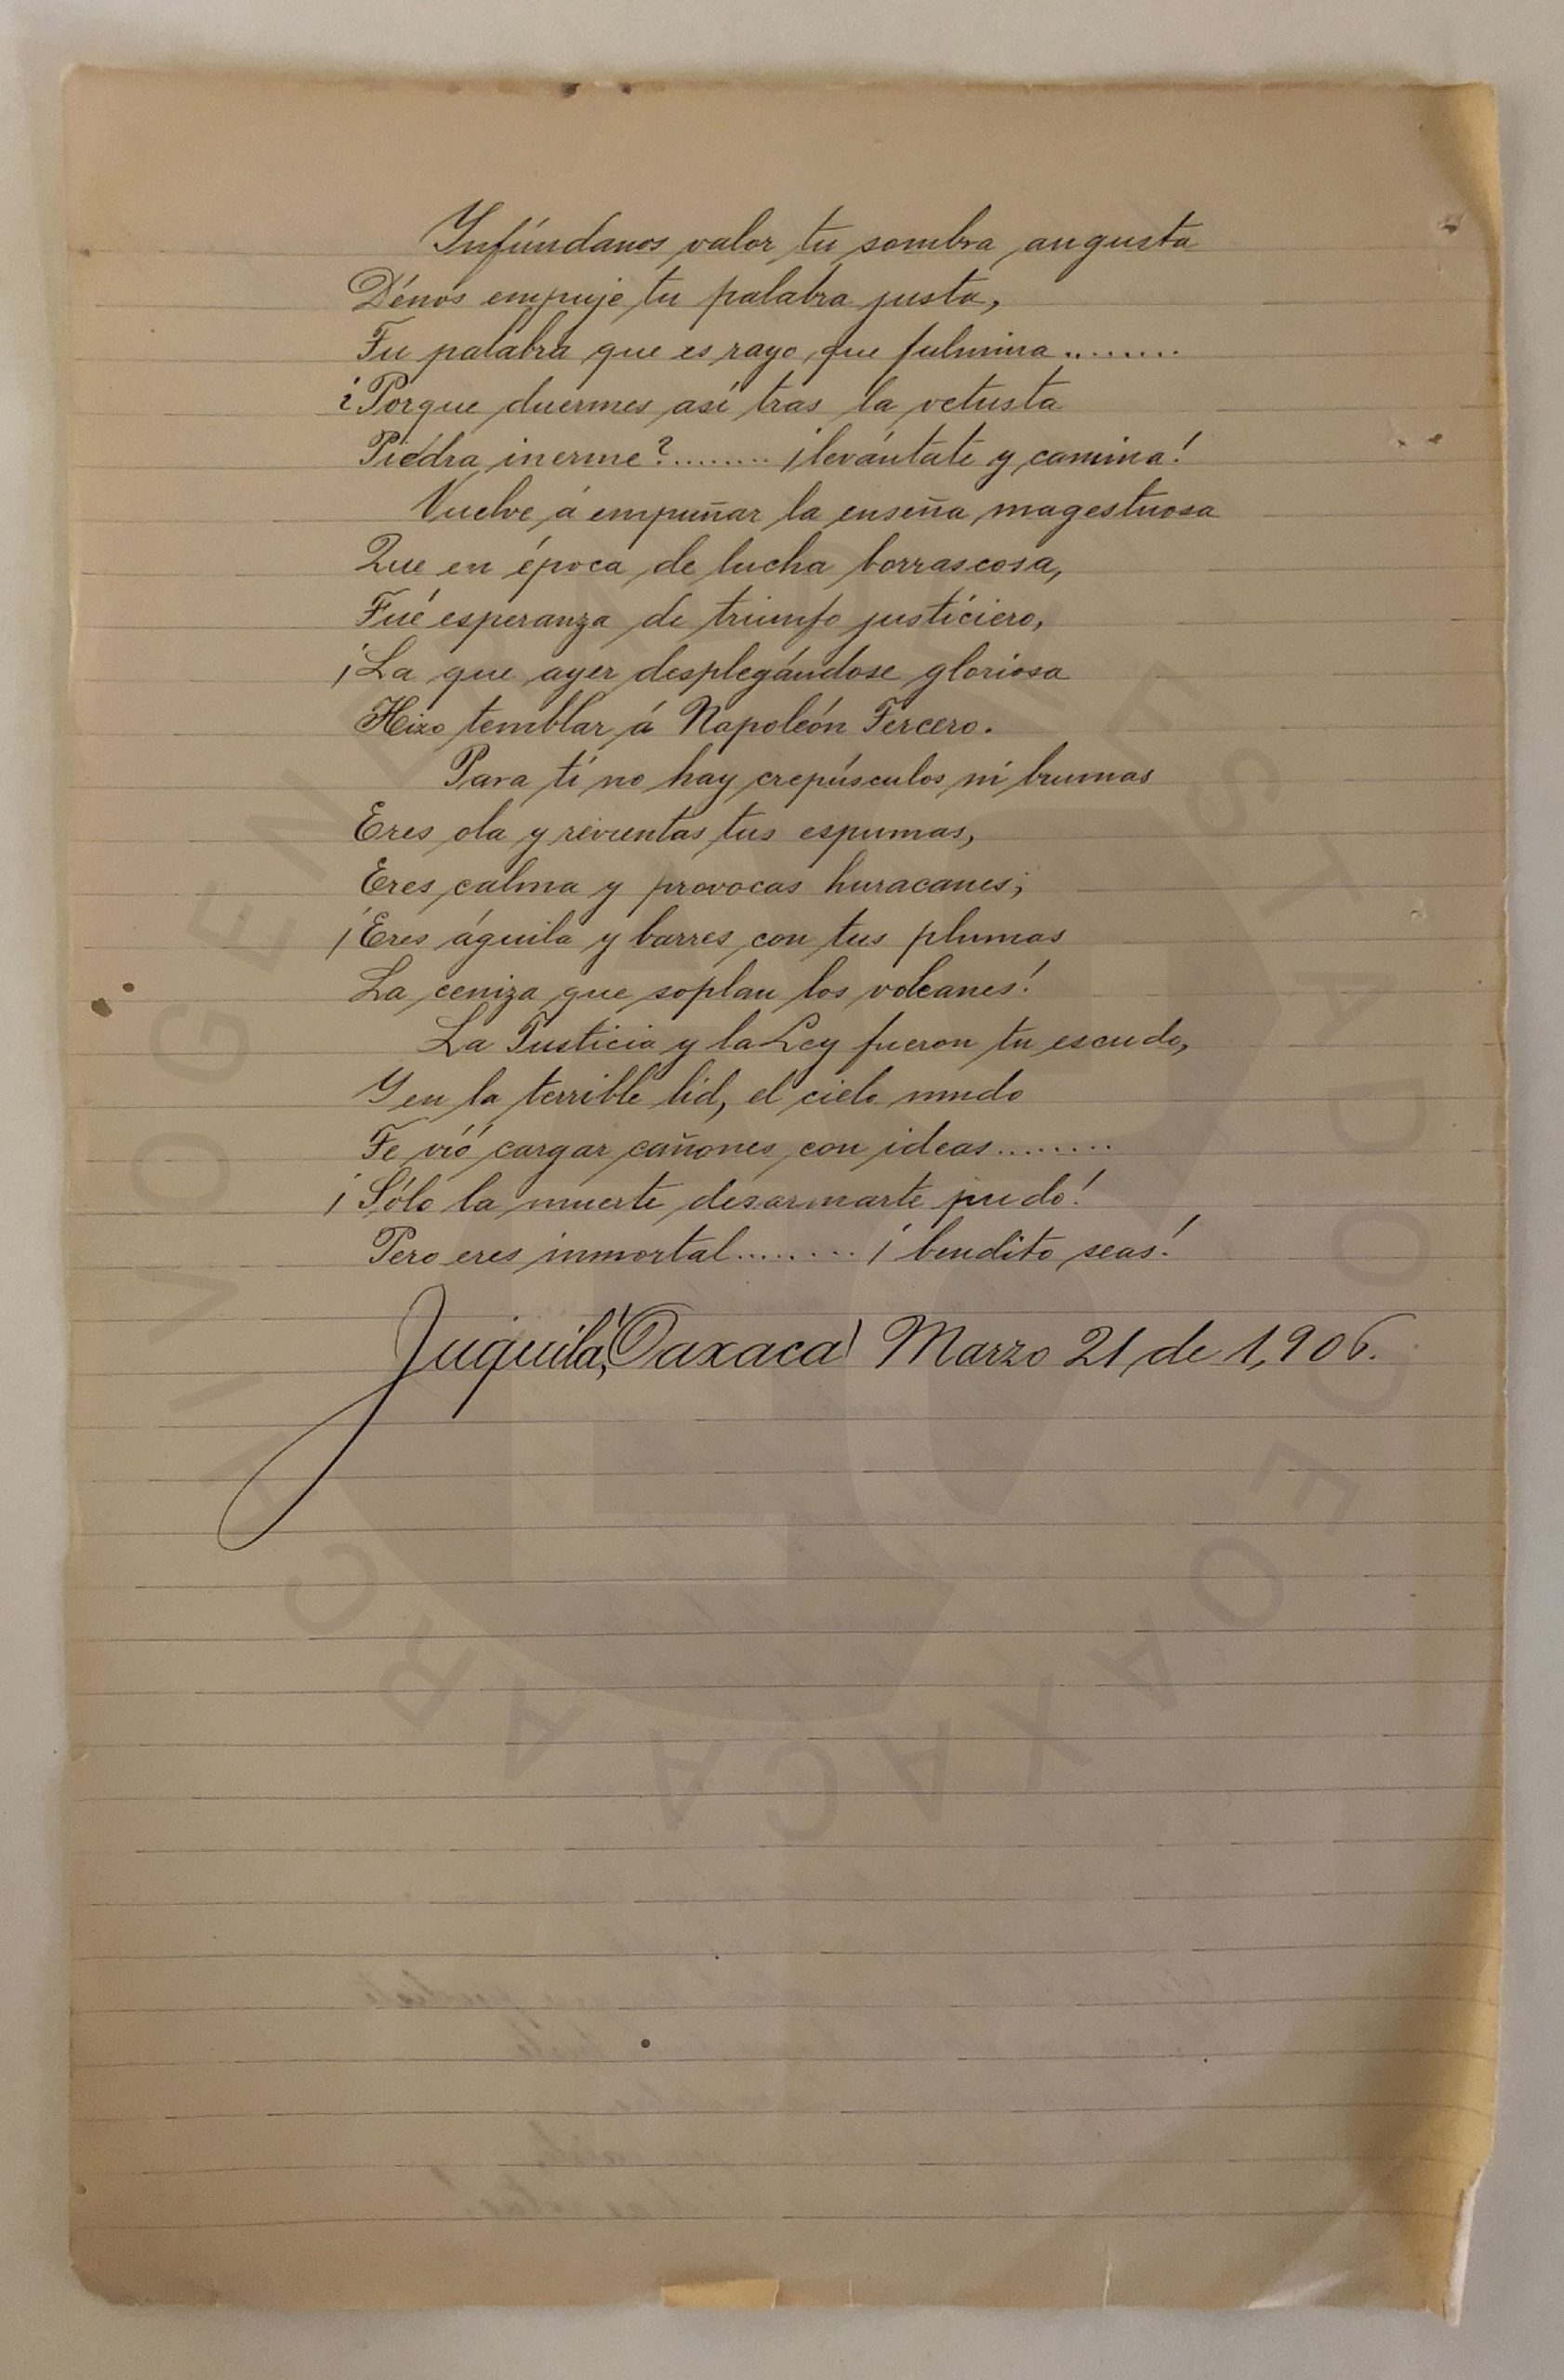 Infúndanos valor tu sombra augusta
Dénos empuje tu palabra justa,
Tu palabra que es rayo que fulmina........
¿Porque duermes así tras la vetusta
Piedra inerme?........ ¡levántate y camina!
Vuelve á empuñar la enseña magestuosa
Que en época de lucha borrascosa,
Fué esperanza de triunfo justiciero,
¡La que ayer desplegándose gloriosa
Hizo temblar á Napoleón Tercero.
Para tí no hay crepúsculos ni brumas
Eres ola y revientas tus espumas,
Eres calma y provocas huracanes;
¡Eres águila y barres con tus plumas
La ceniza que soplan los volcanes!
La Justicia y la Ley fueron tu escudo,
Y en la terrible lid, el cielo mudo
Te vió cargar cañones con ideas........
¡Sólo la muerte desarmarte pudo!
Pero eres inmortal........ ¡bendito seas!
Juquila, (Oaxaca) Marzo 21 de 1,906.
ARCHIVO GENERAL DEL ESTADO DE OAXACA